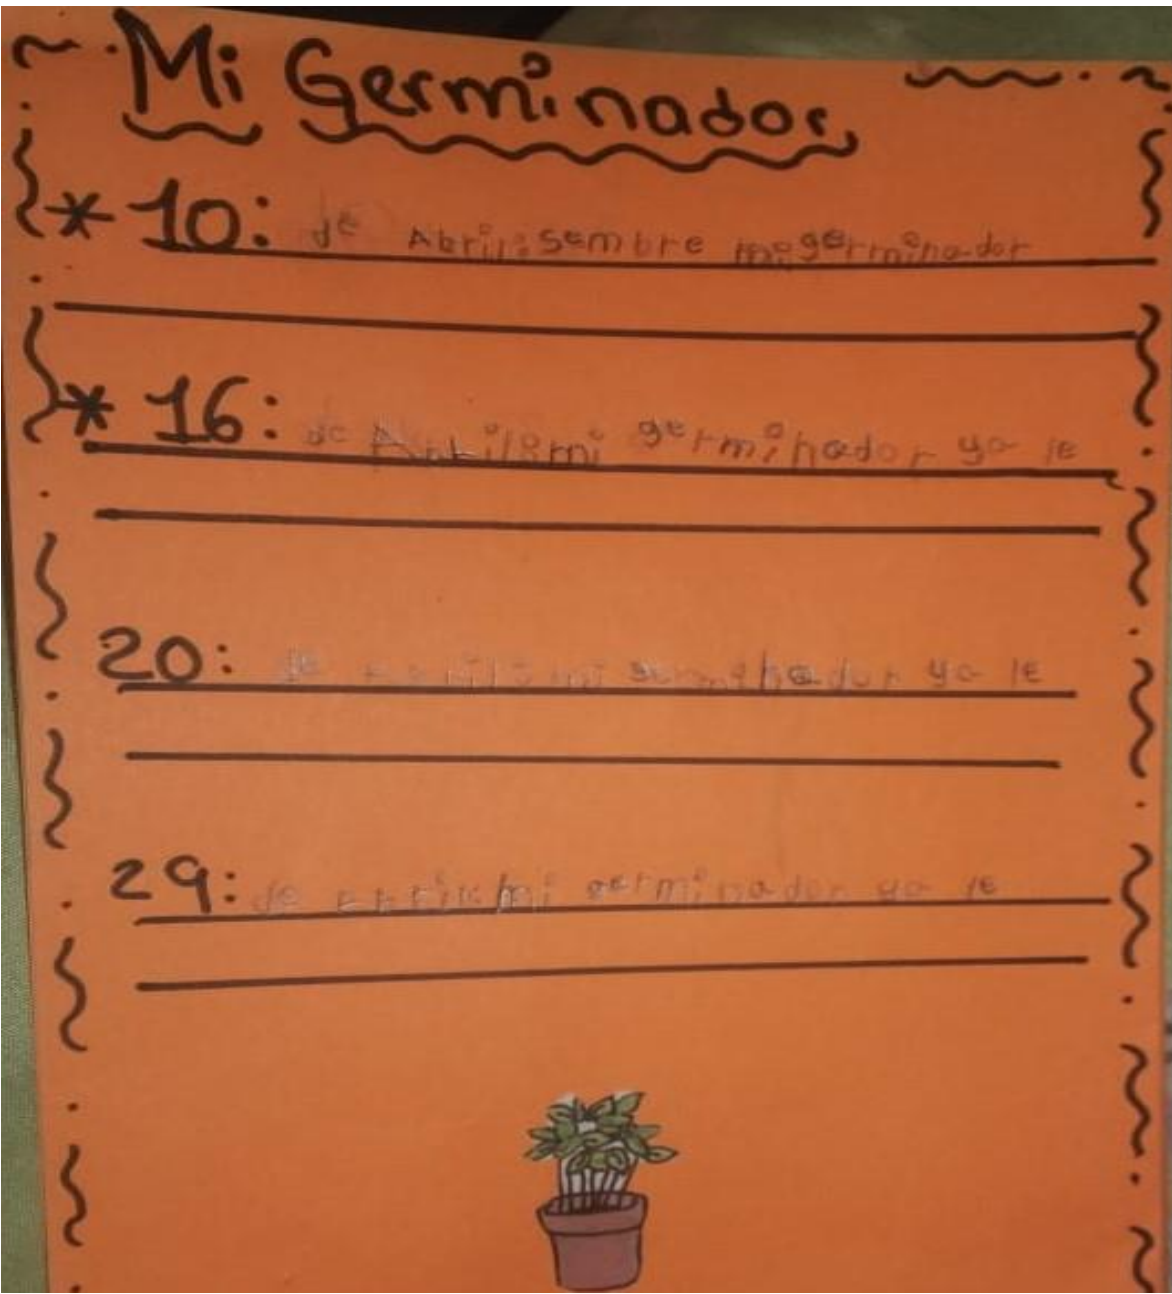 Mi Germinador
* 10: de Abril: sembre mi germinador
* 16: de Abril: mi germinador ya le
20: de mi germinador ya le
29: de mi germinador ya le